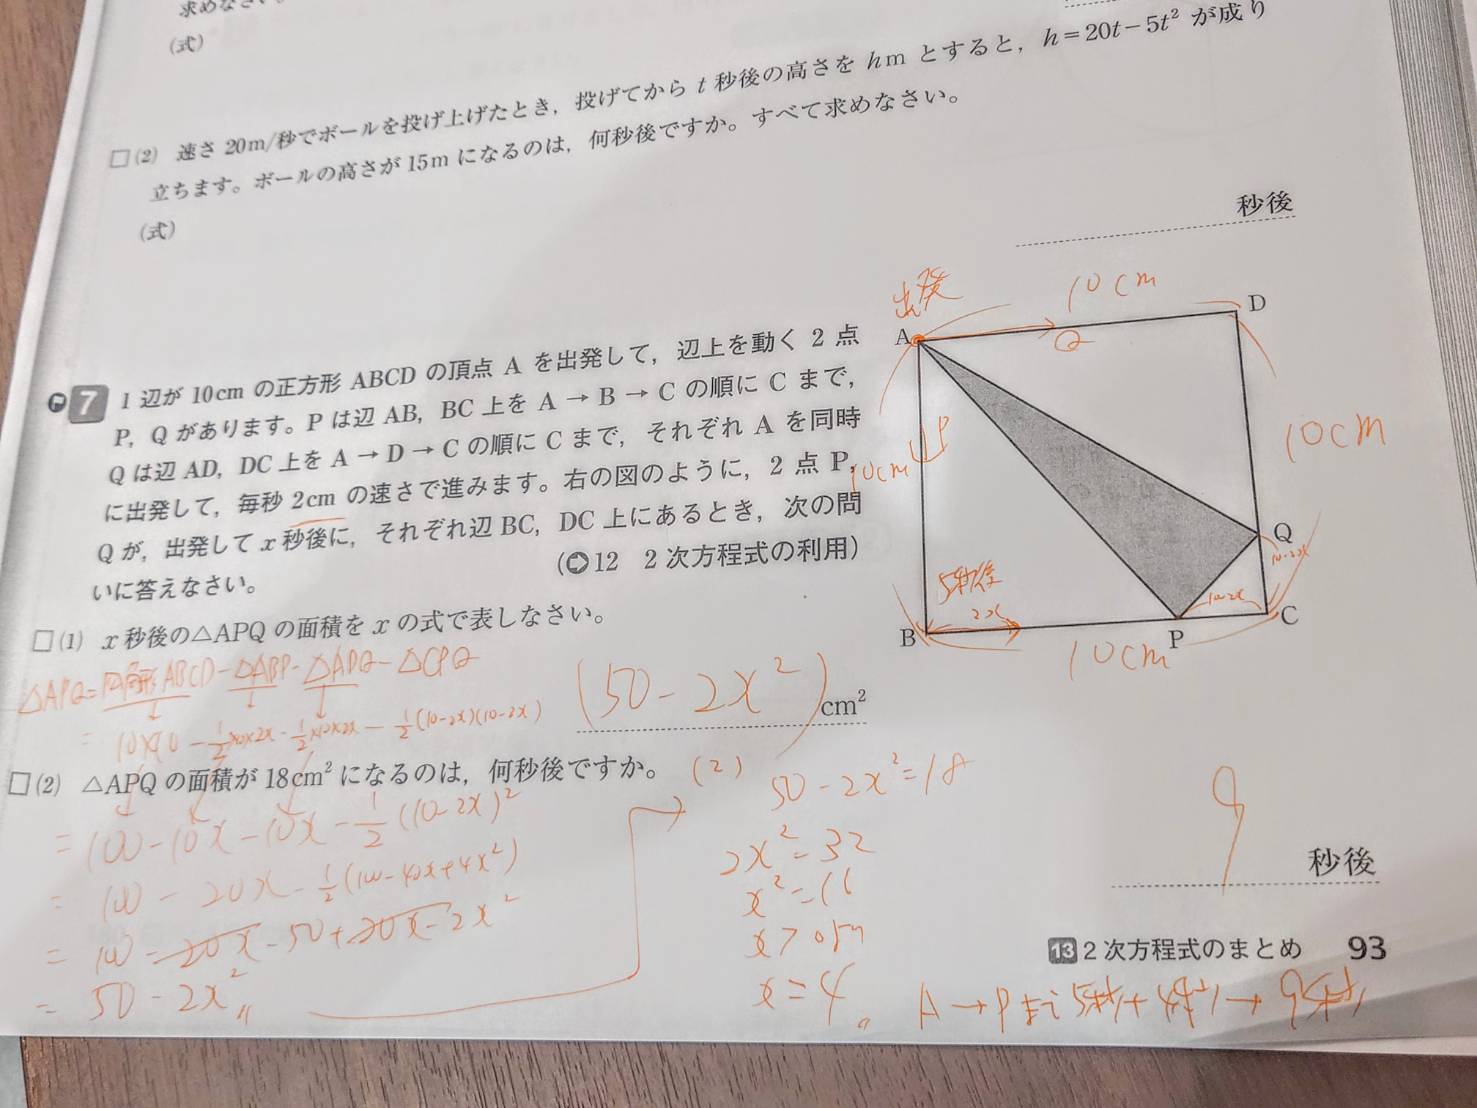 求めなさい。
(式)
□(2) 速さ 20m/秒でボールを投げ上げたとき，投げてから t 秒後の高さを hm とすると，h＝20t－5t² が成り
立ちます。ボールの高さが 15m になるのは，何秒後ですか。すべて求めなさい。
(式)
秒後
7 1 辺が 10cm の正方形 ABCD の頂点 A を出発して，辺上を動く 2 点
P，Q があります。P は辺 AB，BC 上を A → B → C の順に C まで，
Q は辺 AD，DC 上を A → D → C の順に C まで，それぞれ A を同時
に出発して，毎秒 2cm の速さで進みます。右の図のように，2 点 P，
Q が，出発して x 秒後に，それぞれ辺 BC，DC 上にあるとき，次の問
いに答えなさい。
(➲12 2 次方程式の利用)
出発
10cm
A
D
Q
P
10cm
10cm
Q
10-2x
5秒後
2x
10-2x
B
P
C
10cm
□(1) x 秒後の△APQ の面積を x の式で表しなさい。
△APQ=四角形ABCD-△ABP-△APQ-△CPQ
= 10×10-1/2×10×2x-1/2×10×2x-1/2(10-2x)(10-2x)
(50-2x²) cm²
□(2) △APQ の面積が 18cm² になるのは，何秒後ですか。
= 100-10x-10x-1/2(10-2x)²
= 100-20x-1/2(100-40x+4x²)
= 100-20x-50+20x-2x²
= 50-2x²〃
(2)
50-2x²=18
2x²=32
x²=16
x>0より
x=4〃
A→Pまで5秒+4秒→9秒
9 秒後
13 2 次方程式のまとめ 93